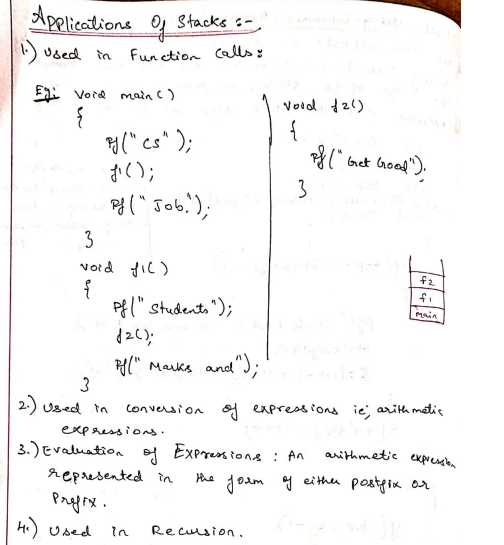 Applications Of Stacks :-
1.) Used in Function Calls :
Eg: void main()
{
Pf("CS");
f1();
Pf("Job.");
}
void f1()
{
Pf("Students");
f2();
Pf("Marks and");
}
void f2()
{
Pf("Get Good").
}
f2
f1
main
2.) Used in conversion of expressions ie; arithmetic
expressions.
3.) Evaluation of Expressions : An arithmetic expression
represented in the form of either postfix or
Prefix.
4.) Used in Recursion.